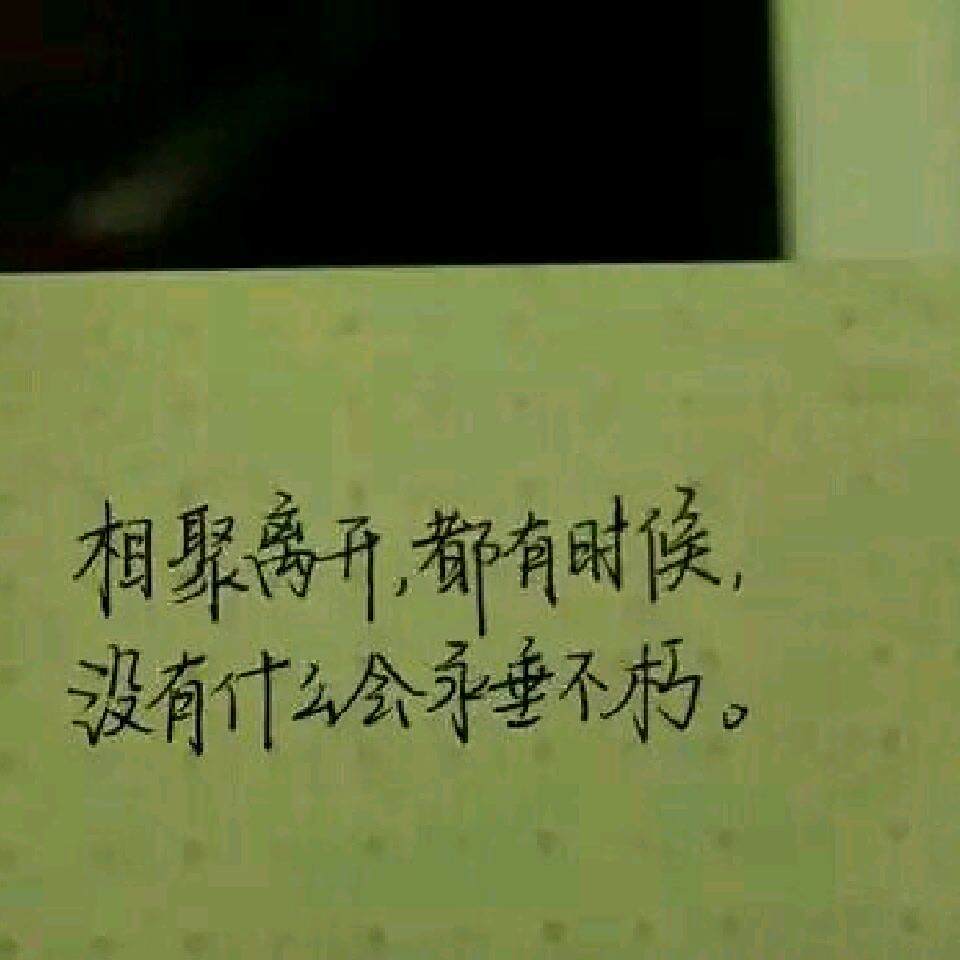 相聚离开,都有时候,
没有什么会永垂不朽。